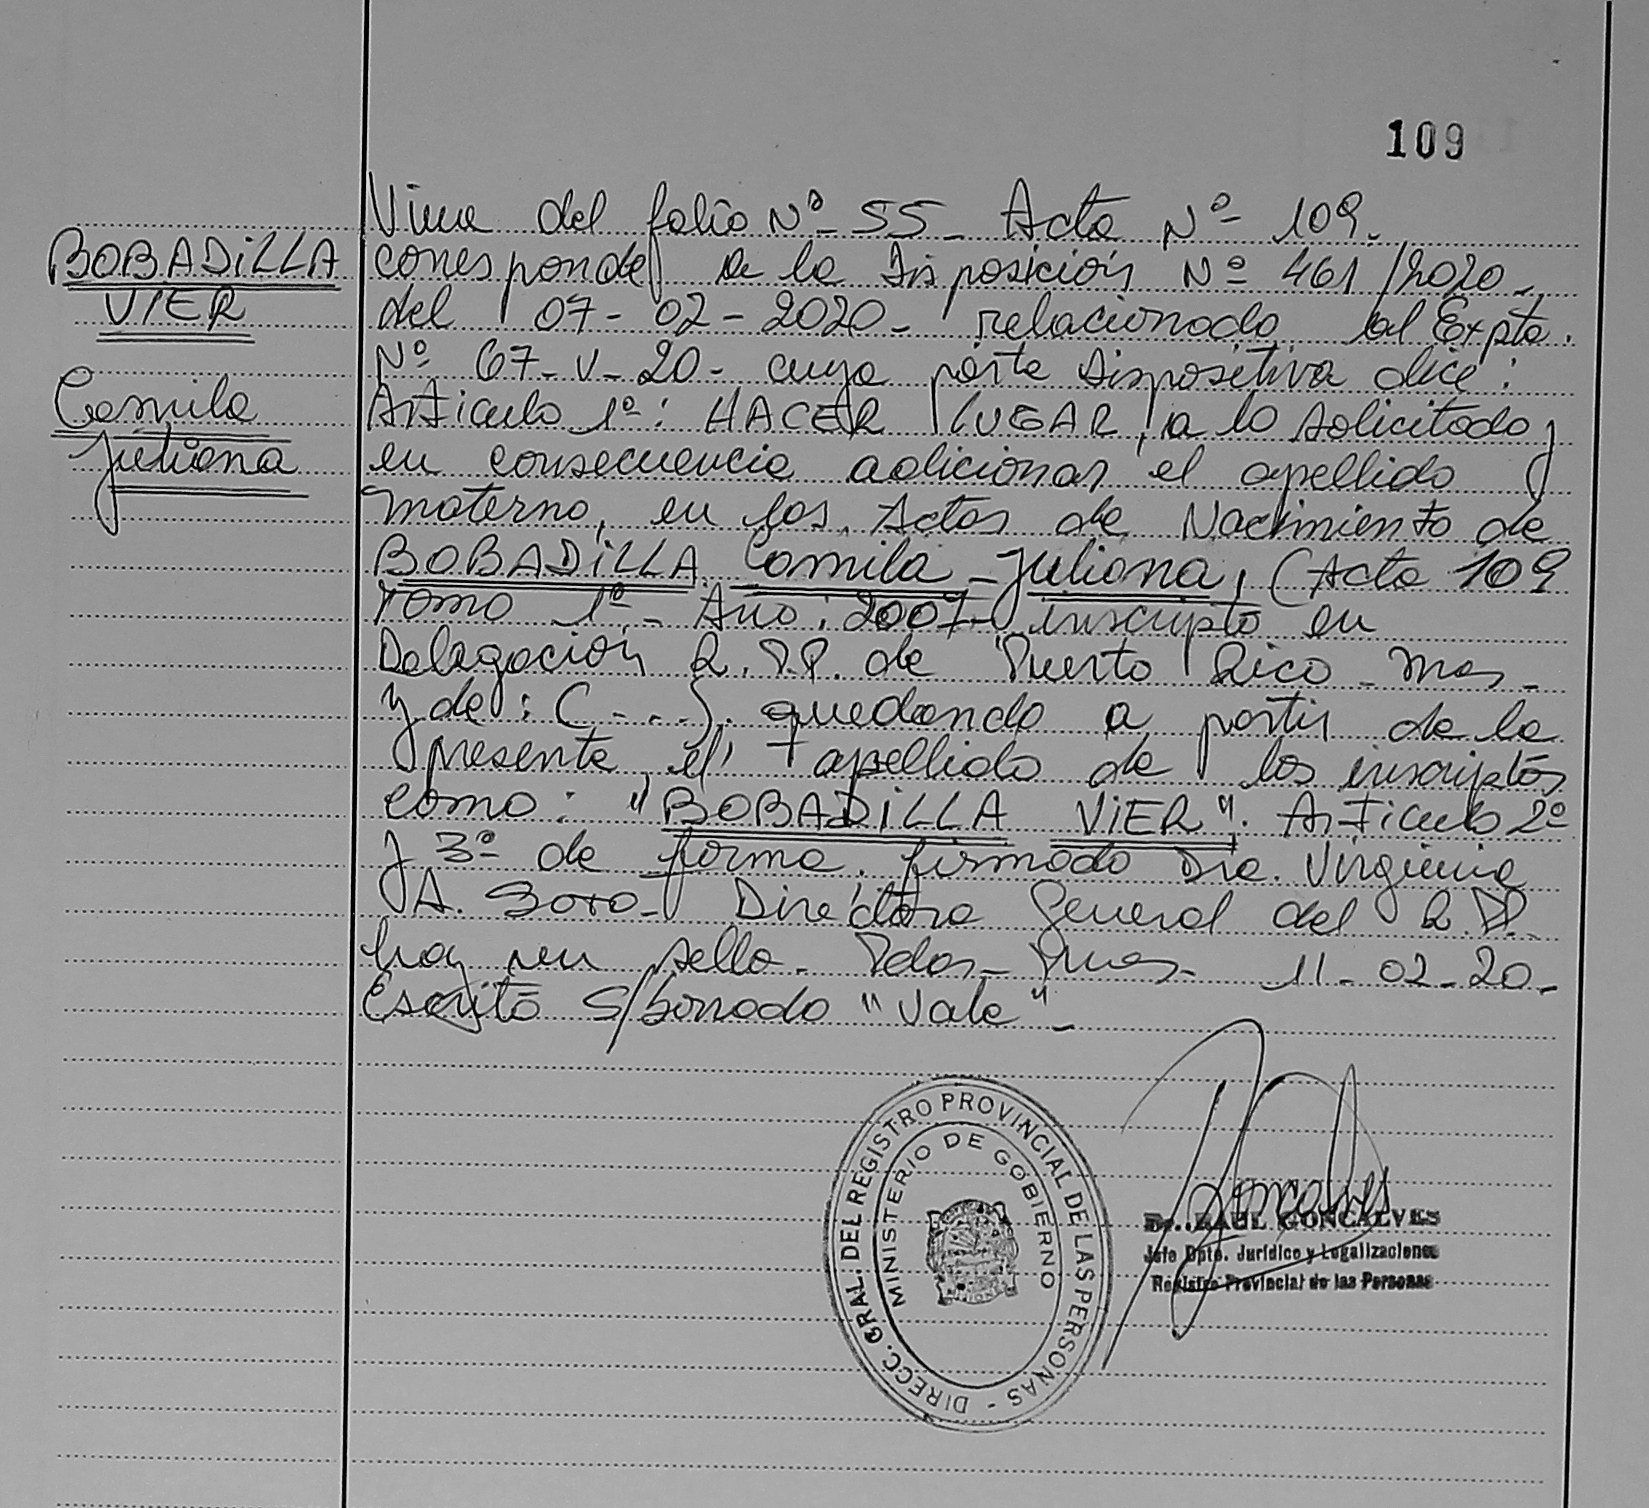 109
BOBADiLLA
VIER
Camila
Juliana
Viene del folio Nº 55 - Acta Nº 109.
corresponde a la Disposición Nº 461/2020 -
del 07-02-2020 - relacionado al Expte.
Nº 67-V-20 - cuya parte dispositiva dice:
Artículo 1º: HACER LUGAR, a lo solicitado y
en consecuencia adicionar el apellido
materno, en las Actas de Nacimiento de
BOBADiLLA Camila Juliana, (Acta 109
Tomo 1º - Año: 2007 - inscripto en
Delegación R.P.P. de Puerto Rico - Mnes -
y de: (- - -). quedando a partir de la
presente, el apellido de los inscriptos
como: "BOBADiLLA ViER". Artículo 2º
y 3º de forma. firmado Dra. Virginia
A. - Directora General del R.P.P.
hay un sello. Pdas - Mnes - 11-02-20 -
Escrito s/borrado "Vale" -
DIRECC. GRAL. DEL REGISTRO PROVINCIAL DE LAS PERSONAS -
MINISTERIO DE GOBIERNO
Dr. RAUL GONCALVES
Jefe Dpto. Jurídico y Legalizaciones
Registro Provincial de las Personas